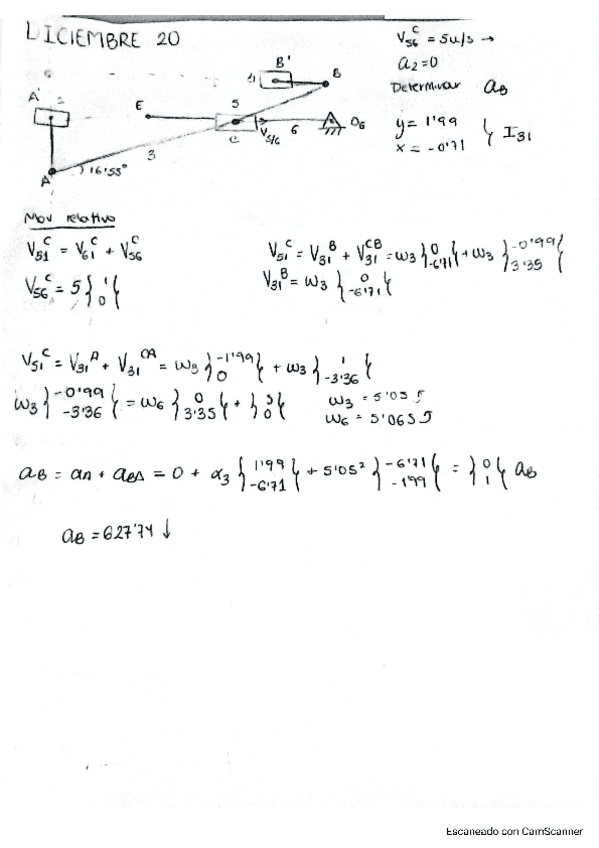 DICIEMBRE 20
V56^C = 5u/s →
a2=0
Determinar aB
y = 1'99
x = -0'71 } I31
B'
4
B
A'
2
E
5
C
V5/6
6
O6
3
A
16'55°
Mov relativo
V51^C = V61^C + V56^C
V56^C = 5 {1 0}
V51^C = V31^B + V31^CB = ω3 {0 -6'71} + ω3 {-0'99 3'35}
V31^B = ω3 {0 -6'71}
V51^C = V31^A + V31^CA = ω3 {-1'99 0} + ω3 {1 -3'36}
ω3 {-0'99 -3'36} = ω6 {0 3'35} + {5 0}
ω3 = 5'05 ↻
ω6 = 5'065 ↻
aB = aA + aBA = 0 + α3 {1'99 -6'71} + 5'05² {-6'71 -1'99} = {0 1} aB
aB = 627'74 ↓
Escaneado con CamScanner